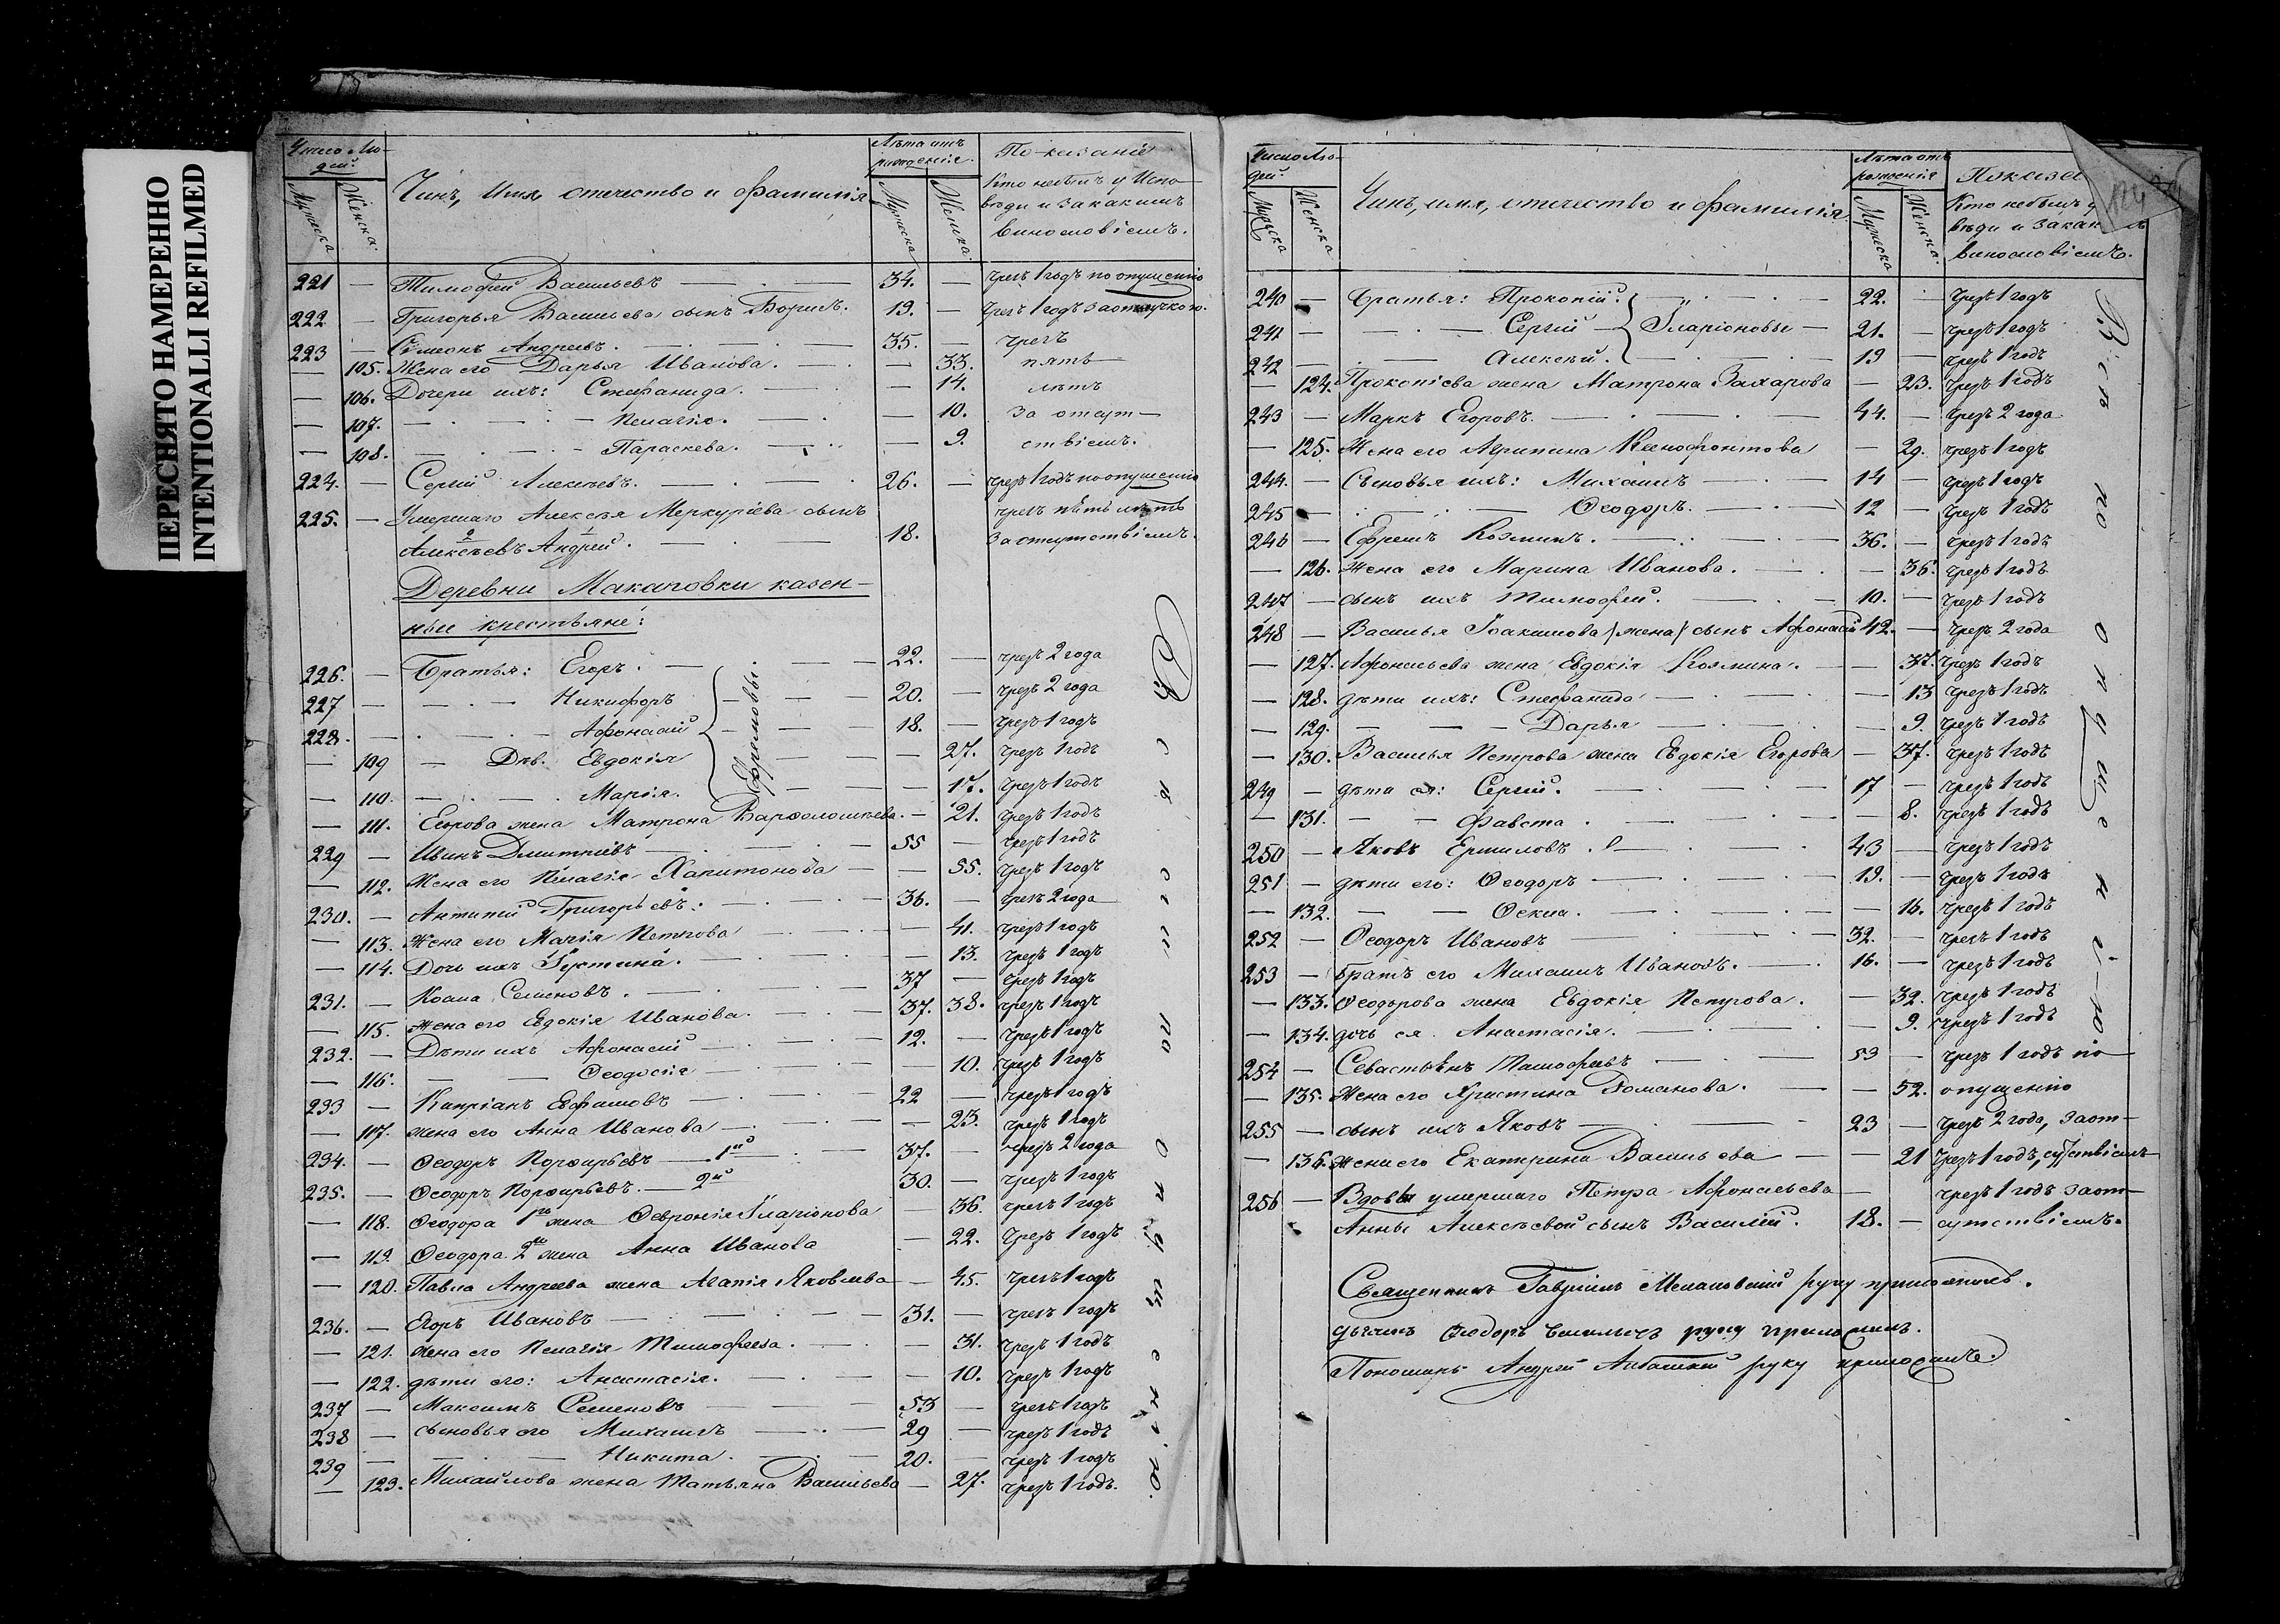 ПЕРЕСНЯТО НАМЕРЕННО
INTENTIONALLI REFILMED
Число Лю-
дей.
Мужеска
Женска.
Чинъ, имя отечество и фамилія
Лѣта отъ
рожденія.
Мужеска
Женска.
По-казаніе
Кто небылъ у Испо-
вѣди и за какимъ
винословіемъ.
221 — Тимофей Васильевъ — 34. — чрезъ 1 годъ по опущенію
222 — Григорья Васильева сынъ Борисъ. 19. — чрезъ 1 годъ за отлучкою.
223 — Симеонъ Андреевъ. — 35. — чрезъ
— 105. Жена его Дарья Иванова. — 33. пять
— 106. Дочери ихъ: Стефанида. — 14. лѣтъ
— 107. — Пелагія. — 10. за отсут-
— 108. — Параскева. — 9. ствіемъ.
224. — Сергій Алексѣевъ. — 26. — чрезъ 1 годъ по опущенію
225. — Умершаго Алексѣя Меркуріева сынъ чрезъ пять лѣтъ
2 1
Алексѣевъ Андрей. — 18. за отсутствіемъ.
Деревни Макаровки казен-
ные крестьяне:
226. — Братья: Егоръ. — 22. — чрезъ 2 года
227 — Никифоръ — 20. — чрезъ 2 года
228. — Афонасій — 18. — чрезъ 1 годъ
Ефремовы
— 109 — Дѣв. Евдокія — 27. чрезъ 1 годъ
— 110. — Марія. — 17. чрезъ 1 годъ
— 111. Егорова жена Матрона Варфоломѣева. — 21. чрезъ 1 годъ
229 — Иванъ Дмитріевъ — 55 — чрезъ 1 годъ
— 112. Жена его Пелагія Харитонова — 55. чрезъ 1 годъ
230. — Антипій Григорьевъ. — 36. — чрезъ 2 года
— 113. Жена его Марія Петрова — 41. чрезъ 1 годъ
— 114. Дочь ихъ Іустина. — 13. чрезъ 1 годъ
231. — Косма Семеновъ. — 37 — чрезъ 1 годъ
— 115. Жена его Евдокія Иванова. — 37. 38. чрезъ 1 годъ
232. — Дѣти ихъ Афонасій — 12. — чрезъ 1 годъ
— 116. — Ѳеодосія — 10. чрезъ 1 годъ
233 — Капріанъ Евфимовъ — 22 — чрезъ 1 годъ
— 117. жена его Анна Иванова — 23. чрезъ 1 годъ
234. — Ѳеодоръ Порфирьевъ — 1й — 37. — чрезъ 2 года
235. — Ѳеодоръ Порфирьевъ. — 2й 30. — чрезъ 1 годъ
— 118. Ѳеодора 1го жена Ѳевронія Иларіонова — 36. чрезъ 1 годъ
— 119. Ѳеодора 2го жена Анна Иванова — 22. чрезъ 1 годъ
— 120. Павла Андреева жена Агапія Яковлева — 45. чрезъ 1 годъ
236. — Егоръ Ивановъ — 31. — чрезъ 1 годъ
— 121. жена его Пелагія Тимофеева. — 31. чрезъ 1 годъ
— 122. дѣти его: Анастасія. — 10. чрезъ 1 годъ
237 — Максимъ Семеновъ — 53 — чрезъ 1 годъ
238 — сыновья его Михаилъ — 29 — чрезъ 1 годъ
239 — Никита. — 20. — чрезъ 1 годъ
— 123. Михайлова жена Татьяна Васильева — 27. чрезъ 1 годъ.
Всѣ по опущенію.
Число Лю-
дей.
Мужеска
Женска
Чинъ, имя, отечество и фамилія.
Лѣта отъ
рожденія
Мужеска
Женска.
Показа
Кто небылъ у
вѣди и за какимъ
винословіемъ.
240 — Братья: Прокопій. — 22. — чрезъ 1 годъ
241 — Сергій — Иларіоновы — 21. — чрезъ 1 годъ
242 — Алексѣй. — 19 — чрезъ 1 годъ
— 124. Прокопіева жена Матрона Захарова — 23. чрезъ 1 годъ
243 — Маркъ Егоровъ. — 44. — чрезъ 2 года
— 125. Жена его Агрипина Ксенофонтова — 29. чрезъ 1 годъ
244. — Сыновья ихъ: Михаилъ — 14 — чрезъ 1 годъ
245 — Ѳеодоръ. — 12 — чрезъ 1 годъ
246 — Ефремъ Козминъ. — 36. — чрезъ 1 годъ
— 126. Жена его Марина Иванова. — 36. чрезъ 1 годъ
247 — сынъ ихъ Тимофей. — 10. — чрезъ 1 годъ
248 — Василья Іоакимова /жена/ сынъ Афонасій 42. — чрезъ 2 года
— 127. Афонасьева жена Евдокія Козмина. — 37. чрезъ 1 годъ
— 128. дѣти ихъ: Стефанида — 13 чрезъ 1 годъ
— 129. — Дарья — 9. чрезъ 1 годъ
— 130. Василья Петрова жена Евдокія Егорова — 37. чрезъ 1 годъ
249 — дѣти ея: Сергій. — 17 — чрезъ 1 годъ
— 131. — Фавста. — 8. чрезъ 1 годъ
250 — Яковъ Ермиловъ. — 43 — чрезъ 1 годъ
251 — дѣти его: Ѳеодоръ — 19. — чрезъ 1 годъ
— 132. — Ѳекла. — 16. чрезъ 1 годъ
252 — Ѳеодоръ Ивановъ — 32. — чрезъ 1 годъ
253 — Братъ его Михаилъ Ивановъ. — 16. — чрезъ 1 годъ
— 133. Ѳеодорова жена Евдокія Петрова. — 32. чрезъ 1 годъ
— 134. дочь ея Анастасія. — 9. чрезъ 1 годъ
254 — Севастьянъ Тимофѣевъ — 53 — чрезъ 1 годъ по
— 135. Жена его Христина Романова. — 52. опущенію
255 — сынъ ихъ Яковъ — 23 — чрезъ 2 года, за от-
— 136. Жена его Екатерина Васильева — 21 чрезъ 1 годъ, сутствіемъ
256 — Вдовы умершаго Петра Афонасьева — чрезъ 1 годъ за от-
Анны Алексѣевой сынъ Василій. 18. — сутствіемъ.
Всѣ по опущенію
Священникъ Гавріилъ руку приложилъ.
дьячекъ Ѳеодоръ руку приложилъ.
Пономарь Андрей руку приложилъ.